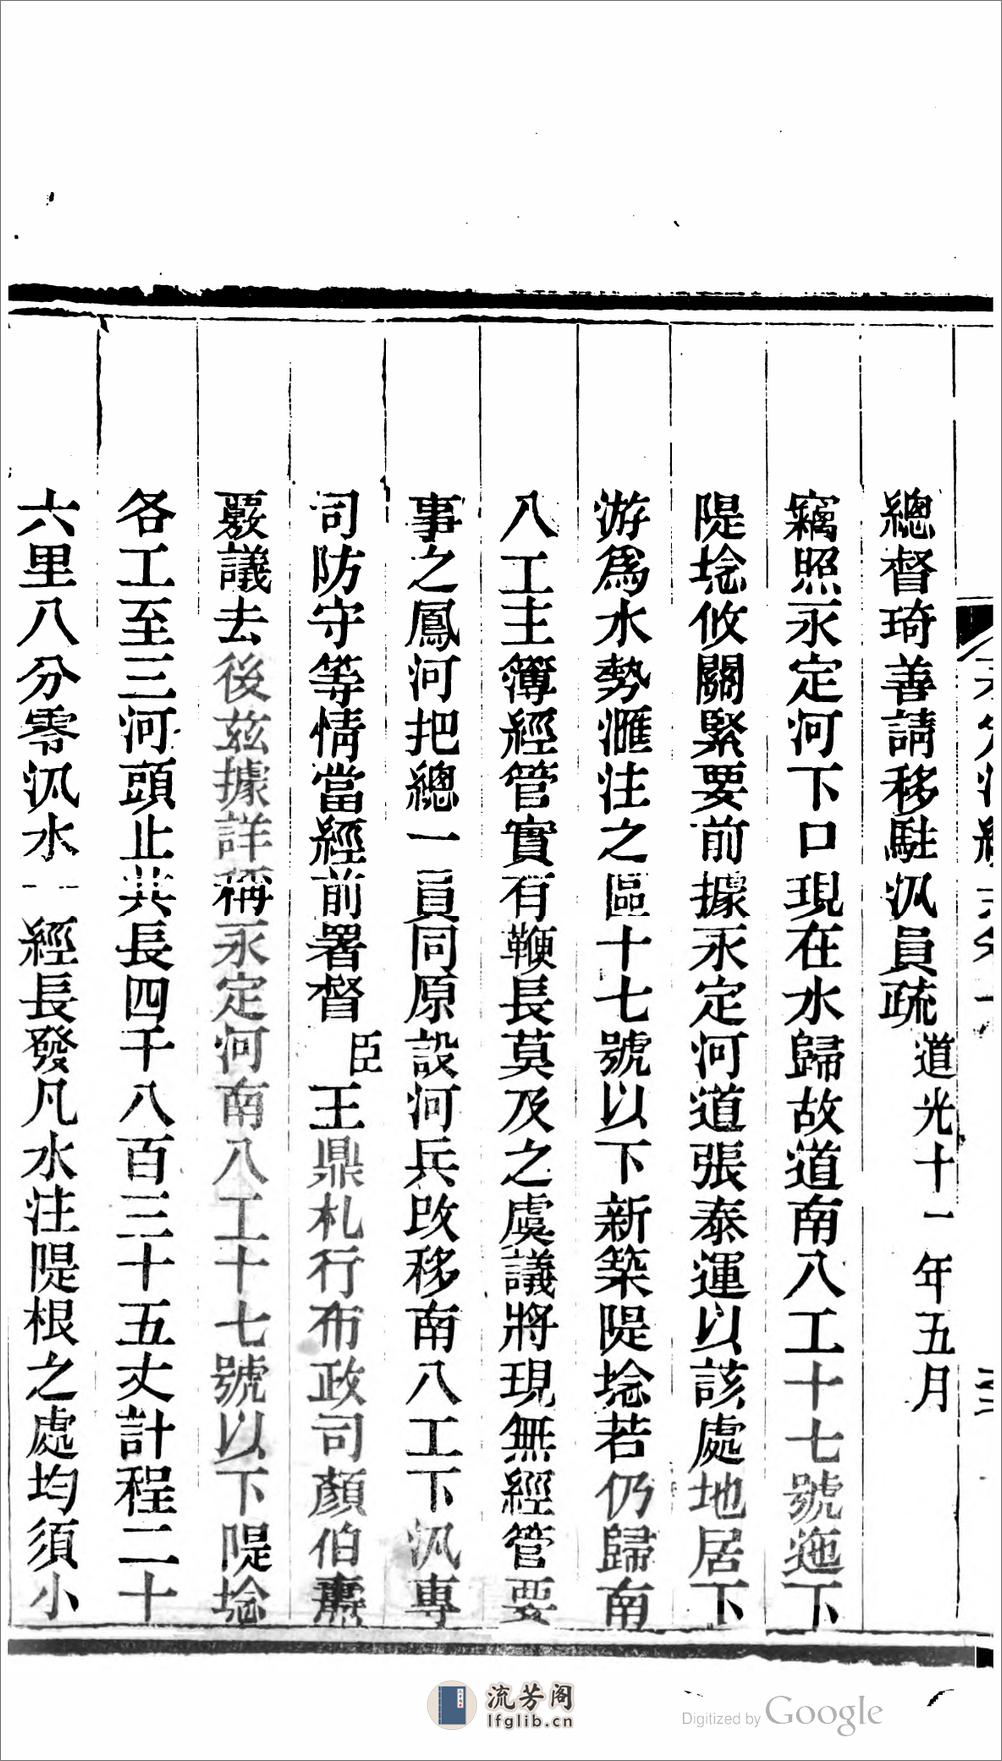 總督琦善請移駐汛員疏 道光十一年五月
竊照永定河下口現在水歸故道南八工十七號迤下
隄埝攸關緊要前據永定河道張泰運以該處地居下
游爲水勢滙注之區十七號以下新築隄埝若仍歸南
八工主簿經管實有鞭長莫及之虞議將現無經管要
事之鳳河把總一員同原設河兵改移南八工下汛專
司防守等情當經前署督臣王鼎札行布政司顏伯燾
覈議去後茲據詳稱永定河南八工十七號以下隄埝
各工至三河頭止共長四千八百三十五丈計程二十
六里八分零汛水一經長發凡水注隄根之處均須小
流芳阁
lfglib.cn
Digitized by Google